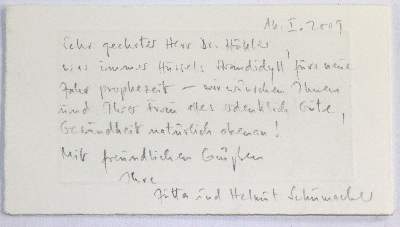 16.I.2009
Sehr geehrter Herr Dr. Köhler,
was immer Hüssels Strandidyll fürs neue
Jahr prophezeit – wir wünschen Ihnen
und Ihrer Frau alles erdenklich Gute,
Gesundheit natürlich obenan!
Mit freundlichen Grüßen
Ihre
Jutta und Helmut Schumacher